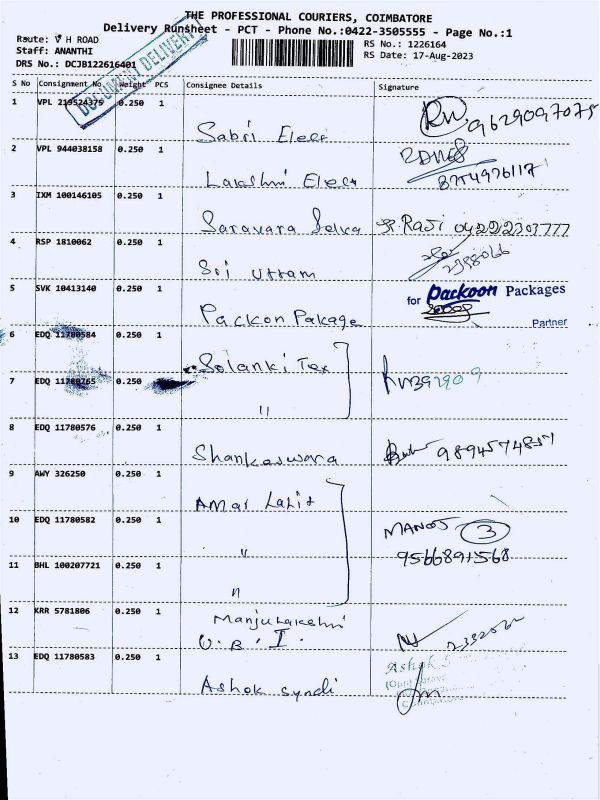 THE PROFESSIONAL COURIERS, COIMBATORE
Delivery Runsheet - PCT - Phone No.:0422-3505555 - Page No.:1
Route: V H ROAD
RS No.: 1226164
Staff: ANANTHI
RS Date: 17-Aug-2023
DRS No.: DCJB122616401
DOCUMENT DELIVERY
S No Consignment No. Weight PCS Consignee Details Signature
1 VPL 219524375 0.250 1
Sabri Elect 9629097075
2 VPL 944038158 0.250 1
Lakshmi Elect 8754976117
3 IXM 100146105 0.250 1
Saravara Selva Raji 0422
4 RSP 1810062 0.250 1
Sri Uttam
5 SVK 10413140 0.250 1
for Packoon Packages
Packon Pakage
Partner
6 EDQ 11780584 0.250 1
Solanki Tex
7 EDQ 11780765 0.250
"
8 EDQ 11780576 0.250 1
Shankeswara
9 AWY 326250 0.250 1
Amar Lalit
10 EDQ 11780582 0.250 1
MANOJ 3
" 9566891568
11 BHL 100207721 0.250 1
"
12 KRR 5781806 0.250 1
Manjulakshmi
U.B.I.
13 EDQ 11780583 0.250 1
Ashok
Ashok Syndi